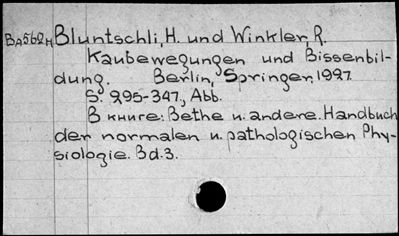 Ba560н Bluntschli, H. und Winkler, R.
Kaubewegungen und Bissenbil-
dung. Berlin, Springer, 1927.
S. 295-347, Abb.
В книге: Bethe u. andere. Handbuch
der normalen u. pathologischen Phy-
siologie. Bd. 3.